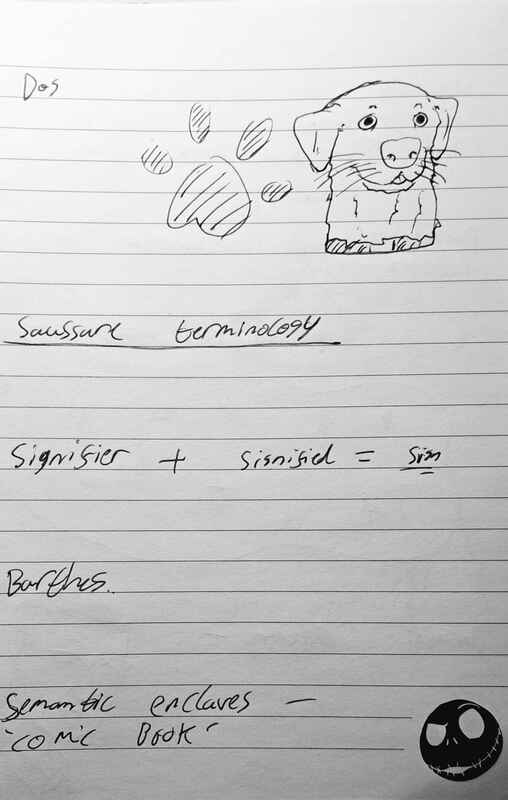 Dog
Saussure terminology
Signifier + signified = sign
Barthes..
Semantic enclaves -
'comic Book'